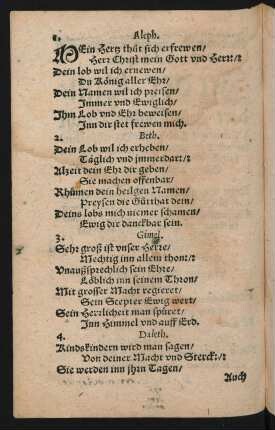 1. Aleph.
MEin Hertz thůt sich erfrewen/
Herr Christ mein Gott vnd Herr:/:
Dein lob wil ich ernewen/
Du König aller Ehr/
Dein Namen wil ich preisen/
Immer vnd Ewiglich/
Ihm Lob vnd Ehr beweisen/
Inn dir stet frewen mich.
2. Beth.
Dein Lob wil ich erheben/
Täglich vnd jmmerdar:/:
Alzeit dein Ehr dir geben/
Sie machen offenbar/
Rhümen dein heilgen Namen/
Preysen die Gütthat dein/
Deins lobs mich niemer schamen/
Ewig dir danckbar sein.
3. Gimel.
Sehr groß ist vnser Herre/
Mechtig inn allem thon:/:
Vnaußsprechlich sein Ehre/
Löblich inn seinem Thron/
Mit grosser Macht regieret/
Sein Scepter Ewig wert/
Sein Herrlicheit man spüret/
Inn Himmel vnd auff Erd.
4. Daleth.
Kindskindern wird man sagen/
Von deiner Macht vnd Sterck:/:
Sie werden inn jhrn Tagen/
Auch